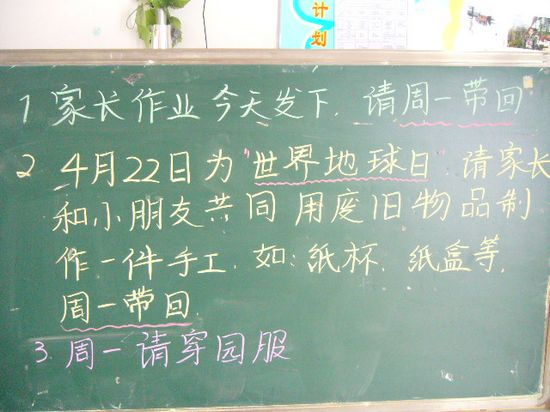 计
划
1 家长作业今天发下，请周一带回
2 4月22日为"世界地球日"请家长
和小朋友共同用废旧物品制
作一件手工，如：纸杯、纸盒等，
周一带回.
3.周一请穿园服